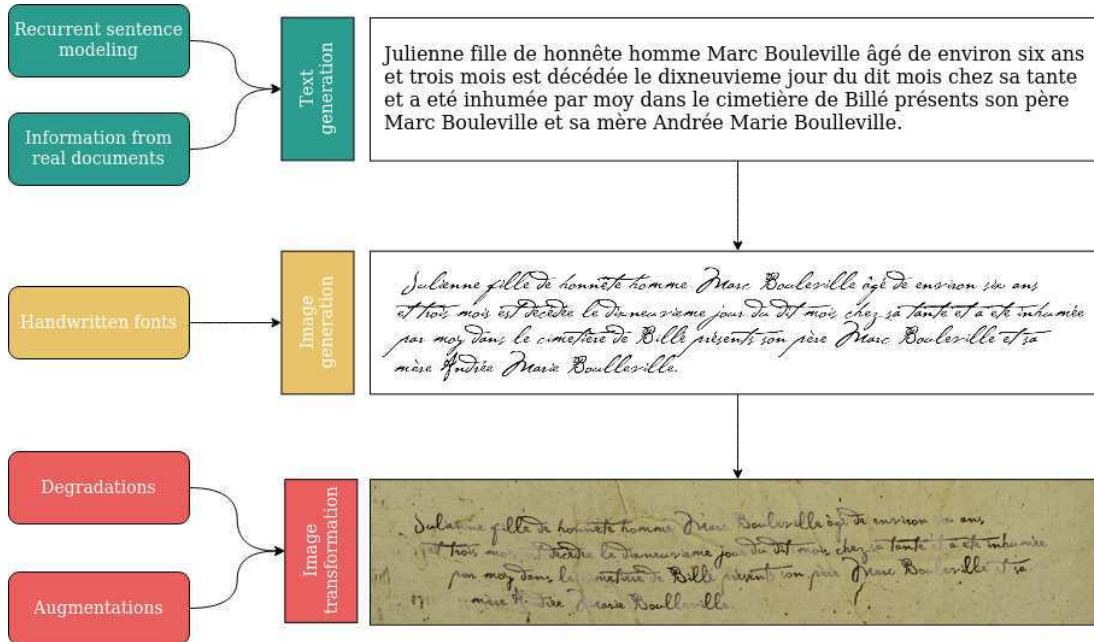 Recurrent sentence
modeling
Information from
real documents
Text
generation
Julienne fille de honnête homme Marc Bouleville âgé de environ six ans
et trois mois est décédée le dixneuvieme jour du dit mois chez sa tante
et a eté inhumée par moy dans le cimetière de Billé présents son père
Marc Bouleville et sa mère Andrée Marie Boulleville.
Handwritten fonts
Image
generation
Julienne fille de honnête homme Marc Bouleville âgé de environ six ans
et trois mois est décédée le dixneuvieme jour du dit mois chez sa tante et a eté inhumée
par moy dans le cimetière de Billé présents son père Marc Bouleville et sa
mère Andrée Marie Boulleville.
Degradations
Augmentations
Image
transformation
Julienne fille de honnête homme Marc Bouleville âgé de environ six ans
et trois mois est décédée le dixneuvieme jour du dit mois chez sa tante et a eté inhumée
par moy dans le cimetière de Billé présents son père Marc Bouleville et sa
mère Andrée Marie Boulleville.